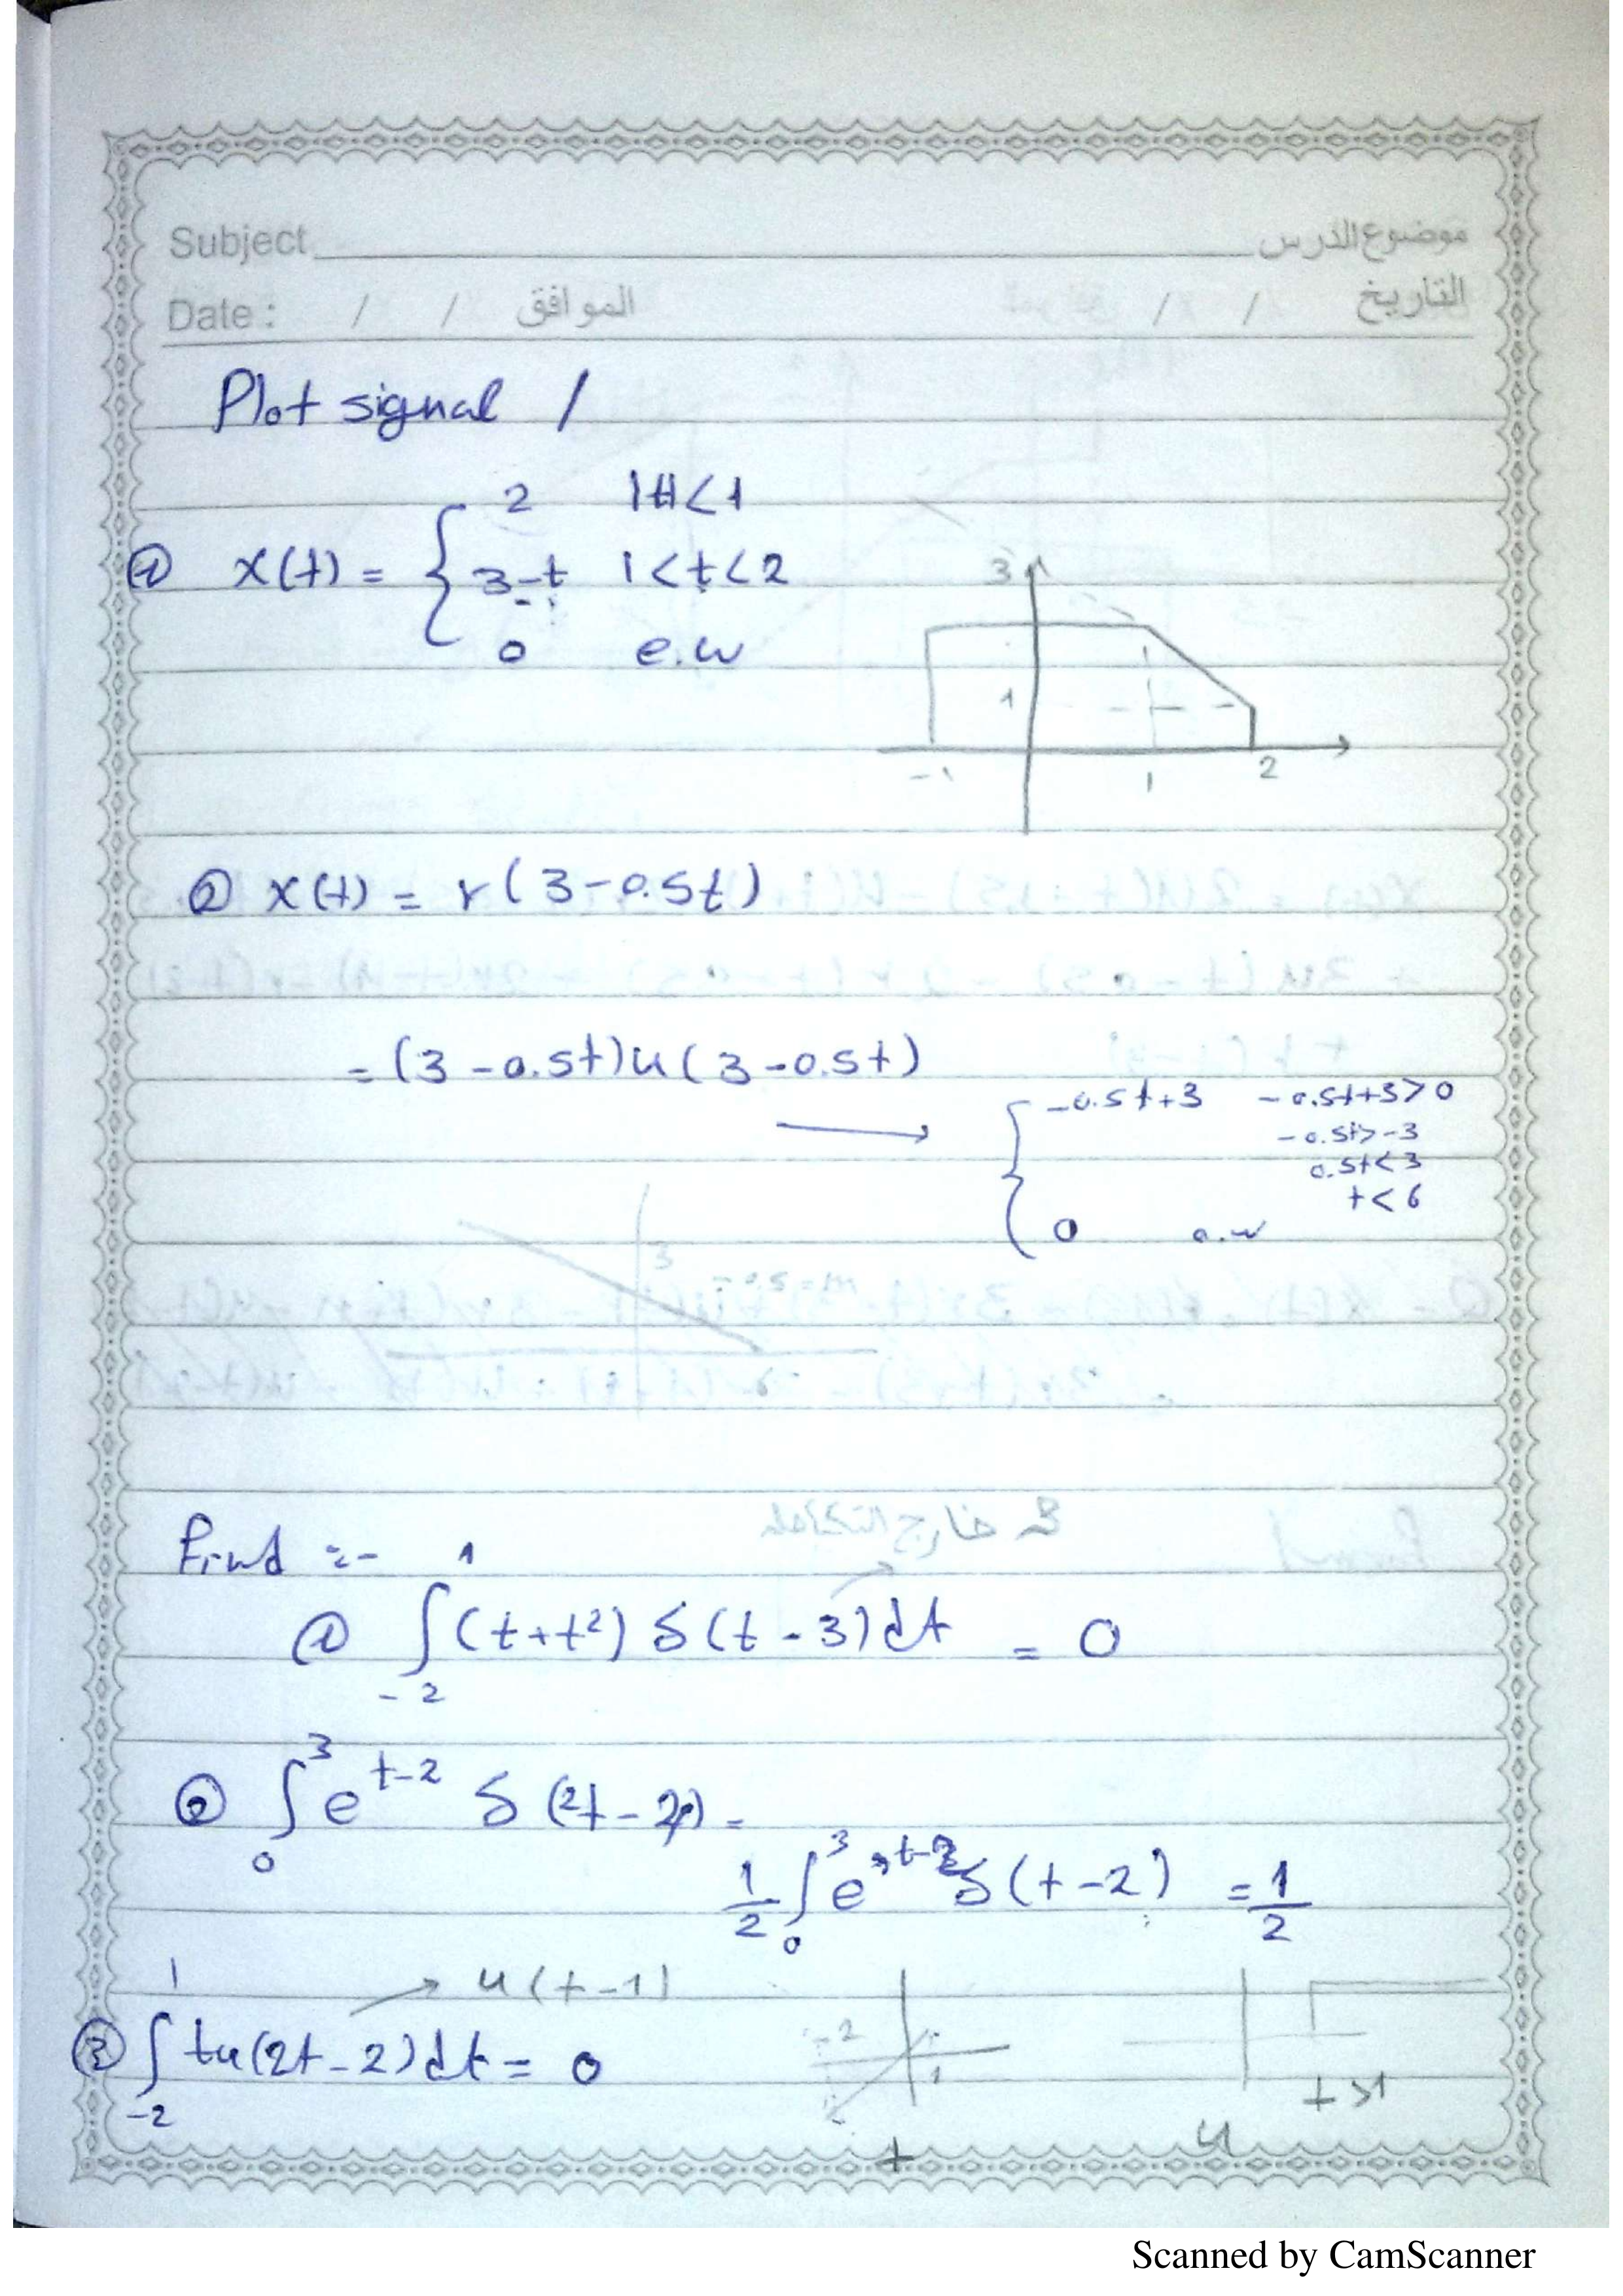 Subject موضوع الدرس
Date : / / الموافق / / التاريخ
Plot signal /
① x(t) = { 2 |t|<1
3-t 1<t<2
0 e.w
3
1
-1 1 2
② x(t) = r(3-0.5t)
= (3-0.5t)u(3-0.5t)
→ { -0.5t+3 -0.5t+3>0
-0.5t>-3
0.5t<3
t<6
0 o.w
3
m=-0.5
6
Find :-
3 خارج التكامل
① ∫_{-2}^{1} (t+t²) δ(t-3)dt = 0
② ∫_{0}^{3} e^{t-2} δ(2t-2) =
1/2 ∫_{0}^{3} e^{t-2} δ(t-2) = 1/2
→ u(t-1)
③ ∫_{-2}^{1} tu(2t-2)dt = 0
-2 1
t>1
t u
Scanned by CamScanner